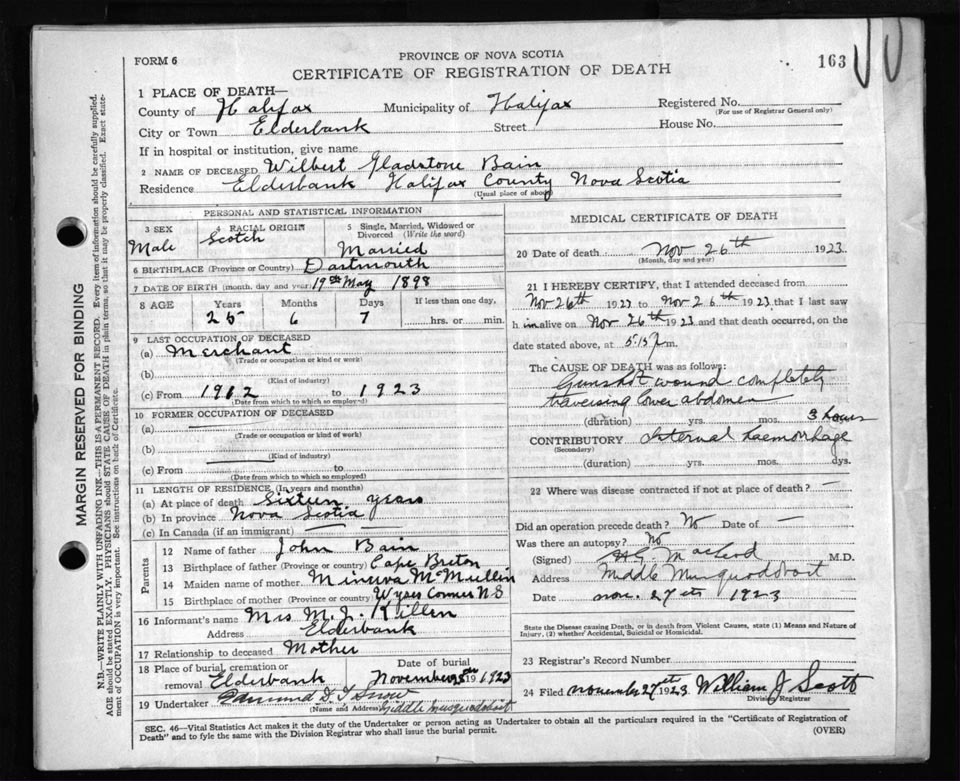 PROVINCE OF NOVA SCOTIA
FORM 6
CERTIFICATE OF REGISTRATION OF DEATH
163
1 PLACE OF DEATH—
County of Halifax Municipality of Halifax Registered No.
(For use of Registrar General only)
City or Town Elderbank Street House No.
If in hospital or institution, give name
2 NAME OF DECEASED Wilbert Gladstone Bain
Residence Elderbank Halifax County Nova Scotia
(Usual place of abode)
PERSONAL AND STATISTICAL INFORMATION
3 SEX Male
4 RACIAL ORIGIN Scotch
5 Single, Married, Widowed or Divorced (Write the word) Married
6 BIRTHPLACE (Province or Country) Dartmouth
7 DATE OF BIRTH (month, day and year) 19th May 1898
8 AGE Years Months Days If less than one day,
25 6 7 hrs. or min.
9 LAST OCCUPATION OF DECEASED
(a) Merchant
(Trade or occupation or kind or work)
(b)
(Kind of industry)
(c) From 1912 to 1923
(Date from which to which so employed)
10 FORMER OCCUPATION OF DECEASED
(a)
(Trade or occupation or kind of work)
(b)
(Kind of industry)
(c) From to
(Date from which to which so employed)
11 LENGTH OF RESIDENCE (In years and months)
(a) At place of death Sixteen years
(b) In province Nova Scotia
(c) In Canada (if an immigrant)
Parents
12 Name of father John Bain
13 Birthplace of father (Province or country) Cape Breton
14 Maiden name of mother Minerva McMullin
15 Birthplace of mother (Province or country) Wyses Corner N S
16 Informant's name Mrs M. J. Killen
Address Elderbank
17 Relationship to deceased Mother
18 Place of burial, cremation or removal Elderbank
Date of burial November 28th 1923
19 Undertaker Edmund F. Snow
(Name and Address) Middle Musquodoboit
MEDICAL CERTIFICATE OF DEATH
20 Date of death Nov 26th 1923
(Month, day and year)
21 I HEREBY CERTIFY, that I attended deceased from
Nov 26th 1923 to Nov 26th 1923 that I last saw
h im alive on Nov 26th 1923 and that death occurred, on the
date stated above, at 5.15 p m.
The CAUSE OF DEATH was as follows:
Gunshot wound completely
traversing lower abdomen
(duration) yrs. mos. 3 hours
CONTRIBUTORY Internal haemorrhage
(Secondary)
(duration) yrs. mos. dys.
22 Where was disease contracted if not at place of death? —
Did an operation precede death? No Date of —
Was there an autopsy? No
(Signed) H.G. Macleod M.D.
Address Middle Musquodoboit
Date Nov. 27th 1923
State the Disease causing Death, or in death from Violent Causes, state (1) Means and Nature of
Injury, (2) whether Accidental, Suicidal or Homicidal.
23 Registrar's Record Number
24 Filed November 27th 1923 William J Scott
Division Registrar
SEC. 46—Vital Statistics Act makes it the duty of the Undertaker or person acting as Undertaker to obtain all the particulars required in the "Certificate of Registration of
Death" and to fyle the same with the Division Registrar who shall issue the burial permit.
(OVER)
MARGIN RESERVED FOR BINDING
N.B.—WRITE PLAINLY WITH UNFADING INK—THIS IS A PERMANENT RECORD. Every item of information should be carefully supplied.
AGE should be stated EXACTLY. PHYSICIANS should STATE CAUSE OF DEATH in plain terms, so that it may be properly classified. Exact state-
ment of OCCUPATION is very important. See instructions on back of Certificate.